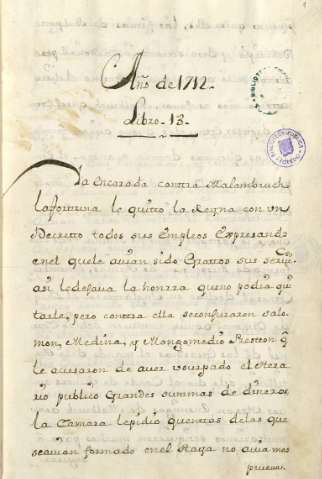 Año de 1712.
Libro 13.
Ya encarada contra Malambruch
la fortuna le quitto la Reyna con un
Decretto todos sus Empleos Expresando
en el que le avian sido Grattos sus servicios.
asi le dejava la honrra que no podia qui
tarle, pero contra ella se conjuraron salo
mon, Medina, y Mongomedio Presson q.
le acusaron de aver usurpado el Hera
rio publico Grandes summas de dinero:
la Camara le pidio quentas de las que
se avian formado en el Haya no aviamos